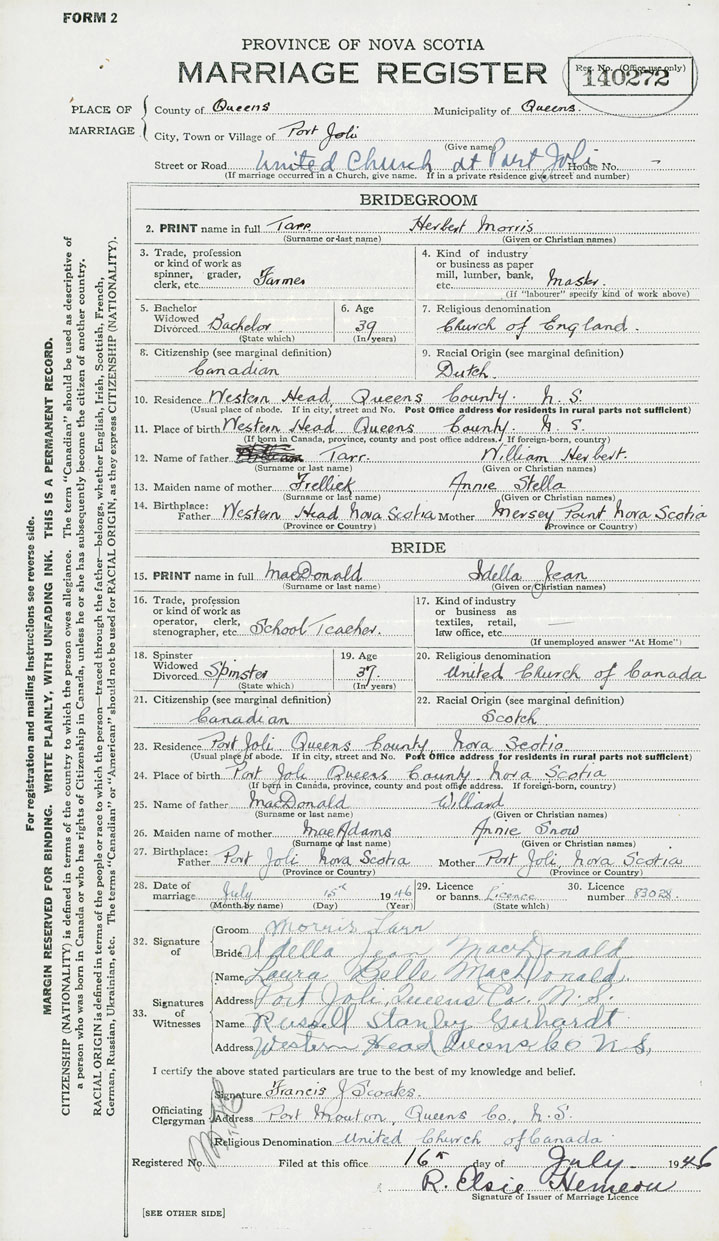 FORM 2
PROVINCE OF NOVA SCOTIA
MARRIAGE REGISTER
Reg. No. (Office use only)
140272
PLACE OF MARRIAGE
County of Queens Municipality of Queens.
City, Town or Village of Port Joli
(Give name)
Street or Road United Church at Port Joli House No. -
(If marriage occurred in a Church, give name. If in a private residence give street and number)
BRIDEGROOM
2. PRINT name in full Tarr Herbert Morris
(Surname or last name) (Given or Christian names)
3. Trade, profession or kind of work as spinner, grader, clerk, etc. Farmer
4. Kind of industry or business as paper mill, lumber, bank, etc. Master.
(If "labourer" specify kind of work above)
5. Bachelor Widowed Divorced Bachelor.
(State which)
6. Age 39
(In years)
7. Religious denomination
Church of England.
8. Citizenship (see marginal definition)
Canadian
9. Racial Origin (see marginal definition)
Dutch.
10. Residence Western Head, Queens County. N. S.
(Usual place of abode. If in city, street and No. Post Office address for residents in rural parts not sufficient)
11. Place of birth Western Head Queens County. N. S.
(If born in Canada, province, county and post office address. If foreign-born, country)
12. Name of father Tarr. William Herbert.
(Surname or last name) (Given or Christian names)
13. Maiden name of mother Frellick Annie Stella
(Surname or last name) (Given or Christian names)
14. Birthplace: Father Western Head Nova Scotia Mother Mersey Point Nova Scotia
(Province or Country) (Province or Country)
BRIDE
15. PRINT name in full MacDonald Idella Jean
(Surname or last name) (Given or Christian names)
16. Trade, profession or kind of work as operator, clerk, stenographer, etc. School Teacher.
17. Kind of industry or business as textiles, retail, law office, etc. —
(If unemployed answer "At Home")
18. Spinster Widowed Divorced Spinster
(State which)
19. Age 37.
(In years)
20. Religious denomination
United Church of Canada
21. Citizenship (see marginal definition)
Canadian
22. Racial Origin (see marginal definition)
Scotch
23. Residence Port Joli Queens County, Nova Scotia
(Usual place of abode. If in city, street and No. Post Office address for residents in rural parts not sufficient)
24. Place of birth Port Joli Queens County. Nova Scotia
(If born in Canada, province, county and post office address. If foreign-born, country)
25. Name of father MacDonald Willard
(Surname or last name) (Given or Christian names)
26. Maiden name of mother MacAdams Annie Snow
(Surname or last name) (Given or Christian names)
27. Birthplace: Father Port Joli Nova Scotia Mother Port Joli, Nova Scotia
(Province or Country) (Province or Country)
28. Date of marriage July 15th 1946
(Month by name) (Day) (Year)
29. Licence or banns Licence
(State which)
30. Licence number 83028.
32. Signature of
Groom Morris Tarr
Bride Idella Jean MacDonald
33. Signatures of Witnesses
Name Laura Belle MacDonald.
Address Port Joli, Queens Co. N. S.
Name Russell Stanley Gerhardt
Address Western Head Queens Co N.S.
I certify the above stated particulars are true to the best of my knowledge and belief.
Officiating Clergyman
Signature Francis J Scoates.
Address Port Mouton, Queens Co., N. S.
Religious Denomination United Church of Canada
Registered No. Filed at this office 16th day of July 1946
R. Elsie Hemeon
Signature of Issuer of Marriage Licence
[SEE OTHER SIDE]
For registration and mailing instructions see reverse side.
MARGIN RESERVED FOR BINDING. WRITE PLAINLY, WITH UNFADING INK. THIS IS A PERMANENT RECORD.
CITIZENSHIP (NATIONALITY) is defined in terms of the country to which the person owes allegiance. The term "Canadian" should be used as descriptive of
a person who was born in Canada or who has rights of Citizenship in Canada, unless he or she has subsequently become the citizen of another country.
RACIAL ORIGIN is defined in terms of the people or race to which the person—traced through the father—belongs, whether English, Irish, Scottish, French,
German, Russian, Ukrainian, etc. The terms "Canadian" or "American" should not be used for RACIAL ORIGIN, as they express CITIZENSHIP (NATIONALITY).